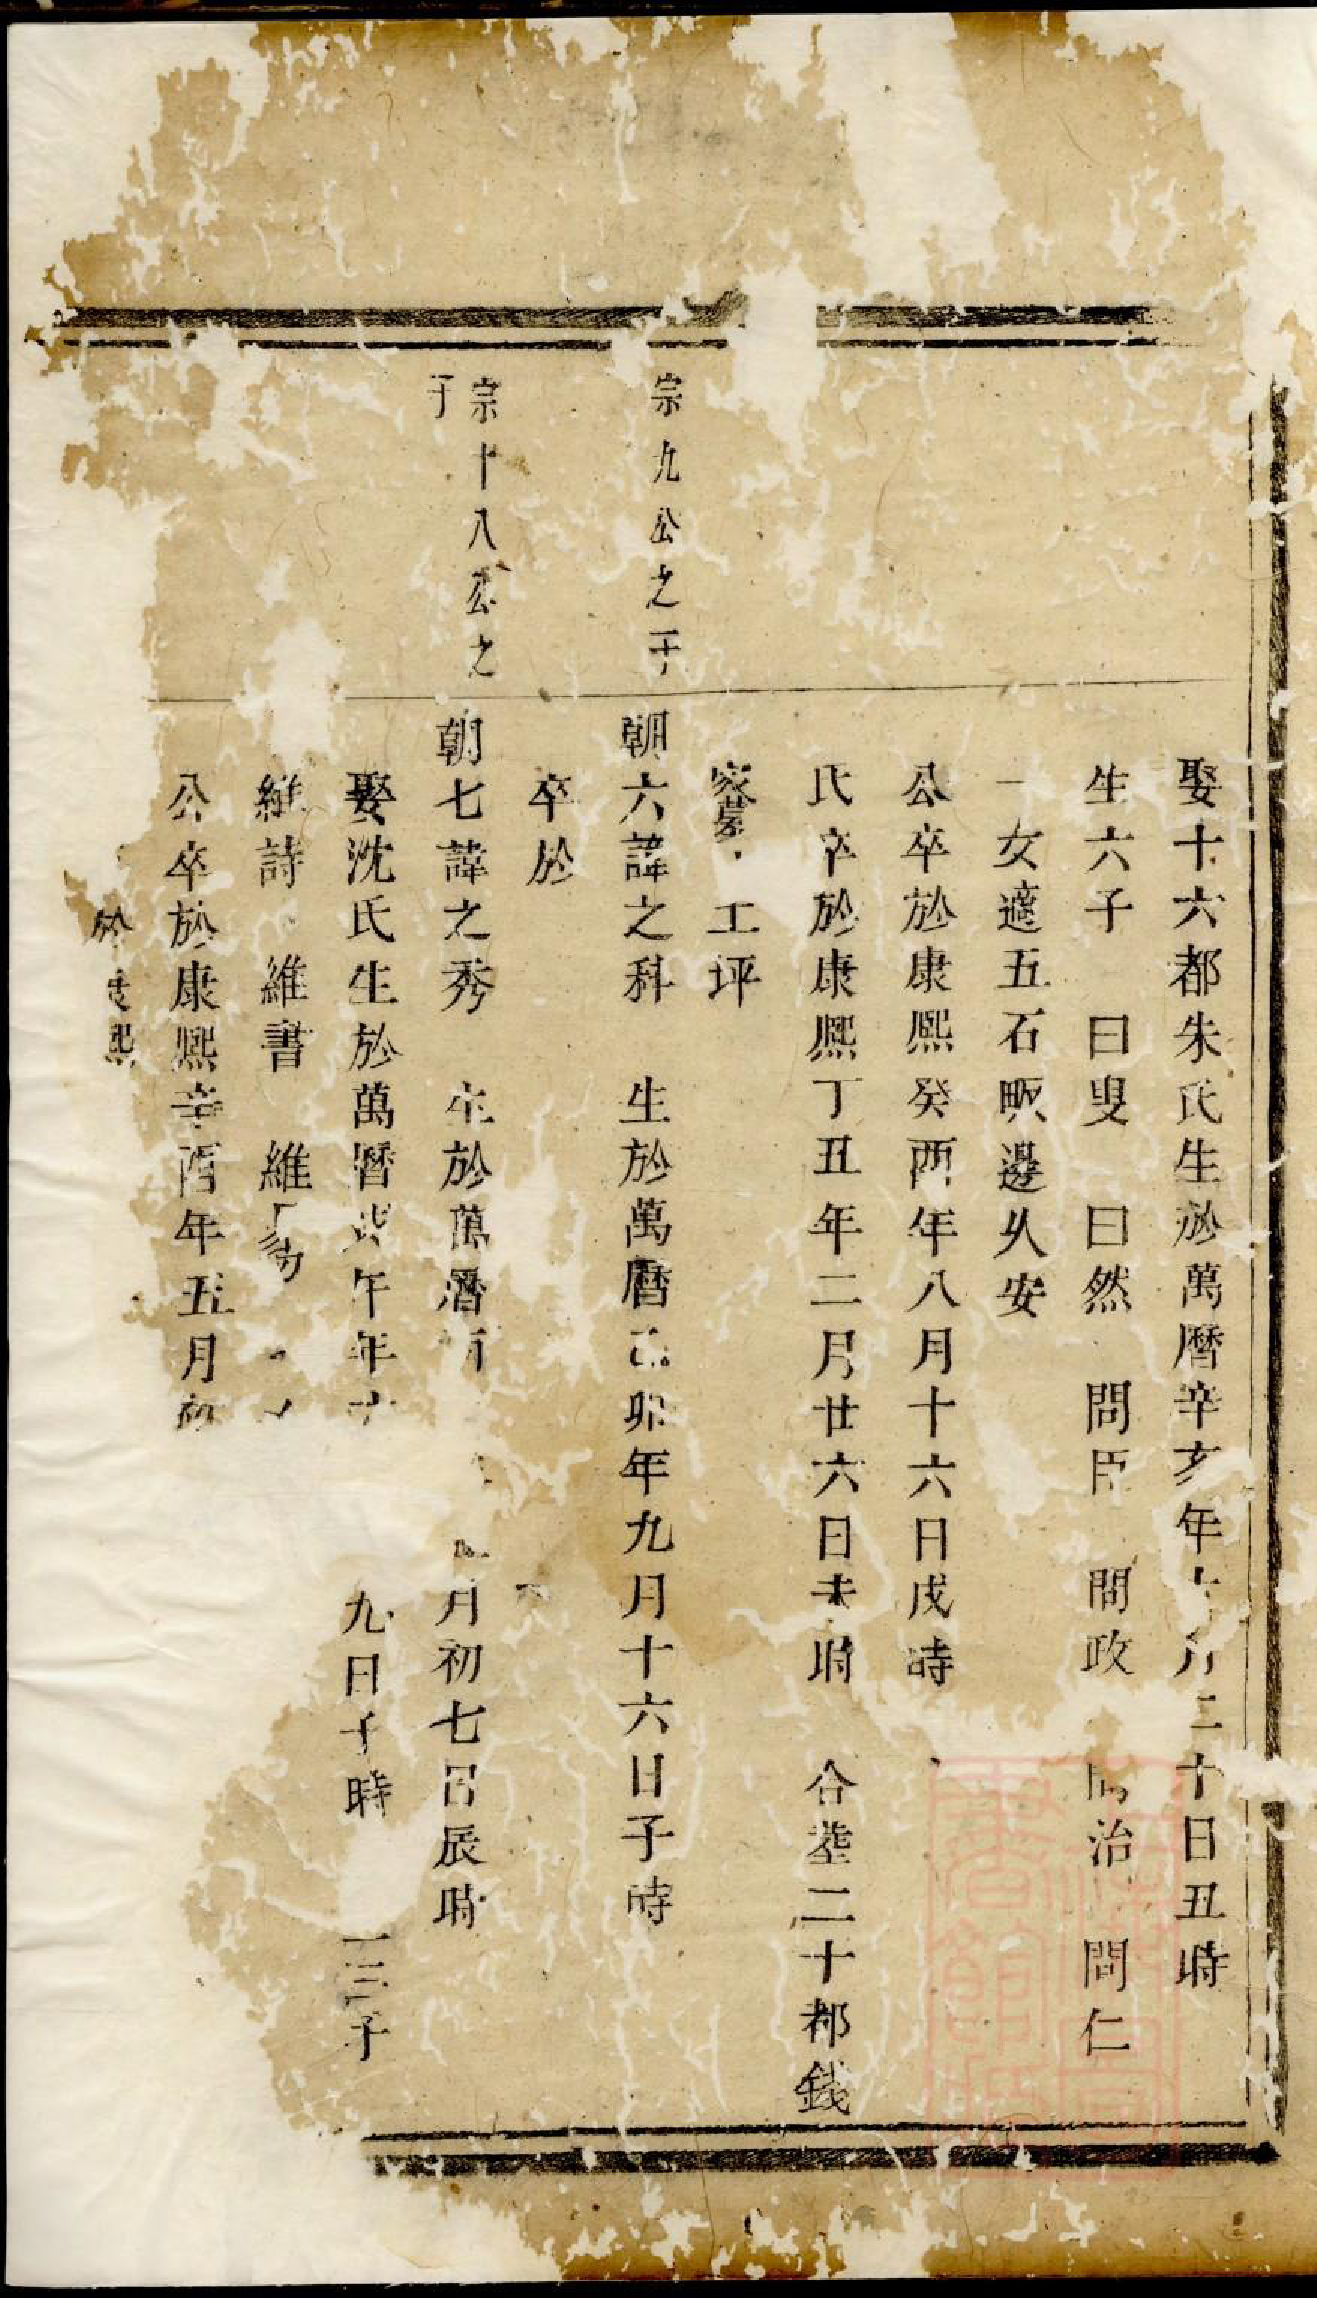 娶十六都朱氏生於萬曆辛亥年月二十日丑時
生六子 曰叟 曰然 問臣 問政 問治 問仁
一女適五石畈邊乆安
公卒於康熙癸酉年八月十六日戌時
氏卒於康熙丁丑年二月廿六日未時 合塟二十都錢
家墓工坪
宗九公之子
朝六諱之科 生於萬曆己卯年九月十六日子時
卒於
宗十八公之
子
朝七諱之秀 生於萬曆月初七日辰時
娶沈氏生於萬曆午年九日子時 三子
維詩 維書 維易
公卒於康熙辛酉年五月初
於康熙